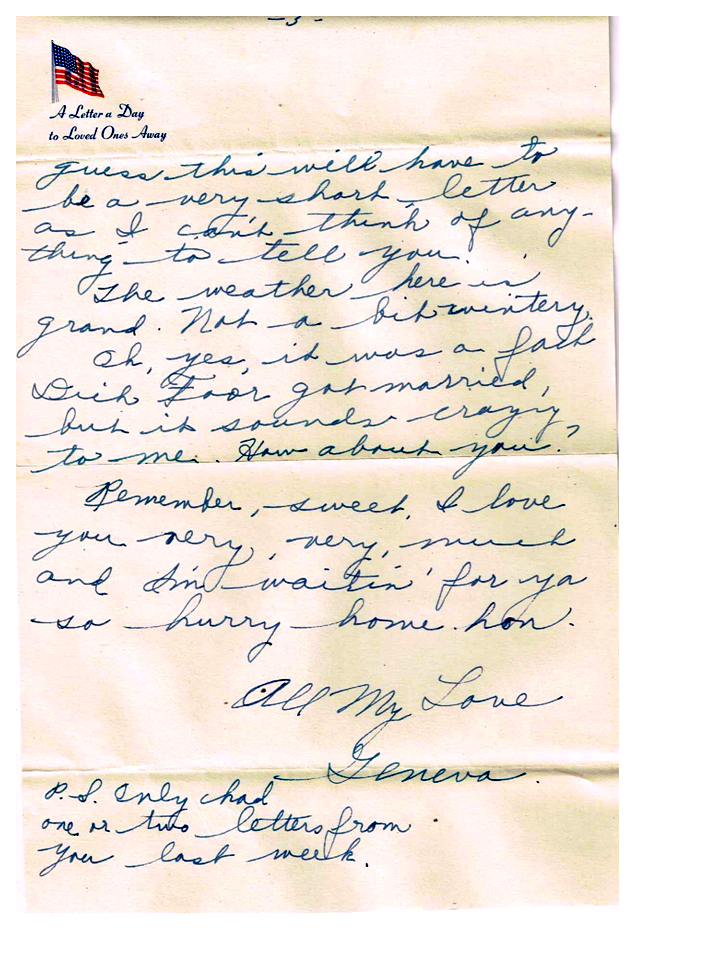 -3-
A Letter a Day
to Loved Ones Away
guess this will have to
be a very short letter
as I can't think of any-
thing to tell you.
The weather here is
grand. Not a bit wintery.
Oh, yes, it was a fact
Dick Foor got married,
but it sounds crazy
to me. How about you?
Remember, sweet, I love
you very, very, much
and I'm waitin' for ya
so hurry home hon.
All My Love
Geneva.
P.S. Only had
one or two letters from
you last week.